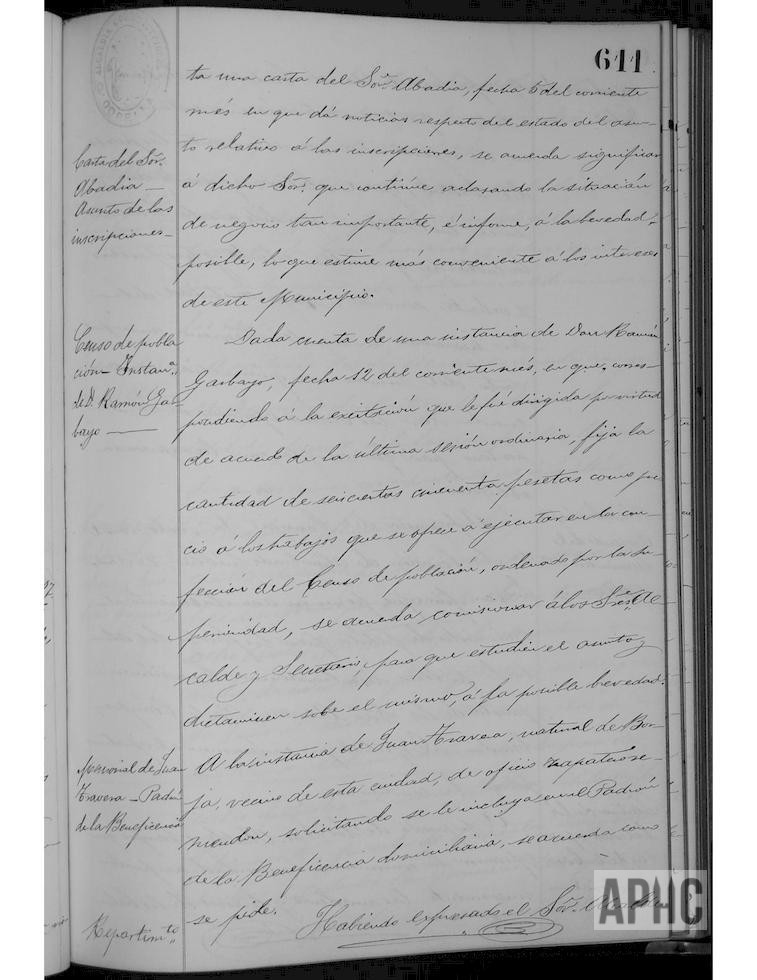 611
ta una carta del Sor. Abadia, fecha 5 del corriente
més en que dá noticias respecto del estado del asun-
to relativo á las inscripciones, se acuerda significar
á dicho Sor. que continúe aclarando la situación
de negocio tan importante, é informe, á la brevedad
posible, lo que estime más conveniente á los intereses
de este Municipio.
Carta del Sor.
Abadia —
Asunto de las
inscripciones —
Dada cuenta de una instancia de Don Ramón
Garbayo, fecha 12 del corriente més, en que, corres-
pondiendo á la excitación que le fué dirigida por virtud
de acuerdo de la última sesión ordinaria, fija la
cantidad de seiscientas cincuenta pesetas como pre-
cio á los trabajos que se ofrece á ejecutar en la con-
fección del Censo de población, ordenado por la Su-
perioridad, se acuerda comisionar á los Sres. Al-
calde y Secretario, para que estudien el asunto y
dictaminen sobre el mismo, á la posible brevedad.
Censo de pobla
ción — Instana.
de D. Ramón Gar-
bayo —
A la instancia de Juan Travera, natural de Bor-
ja, vecino de esta ciudad, de oficio zapatero re-
mendon, solicitando se le incluya en el Padrón
de la Beneficencia domiciliaria, se acuerda como
se pide.
Memorial de Juan
Travera — Padrón
de la Beneficencia
Habiendo expresado el Sor. Alcalde
Repartimto.
APHC